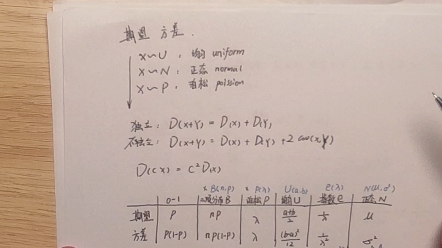 期望 方差.
X∽U, 均匀 uniform
X∽N, 正态 normal
X∽P, 泊松 poission
独立: D(X+Y) = D(X) + D(Y)
不独立: D(X+Y) = D(X) + D(Y) + 2 cov(X,Y)
D(CX) = C²D(X)
X B(n,p) X P(λ) U(a,b) E(λ) N(μ,σ²)
0-1 二项分布B 泊松P 均匀U 指数e 正态N
期望 P nP λ a+b/2 1/λ μ
方差 P(1-P) nP(1-P) λ (b-a)²/12 1/λ² σ²